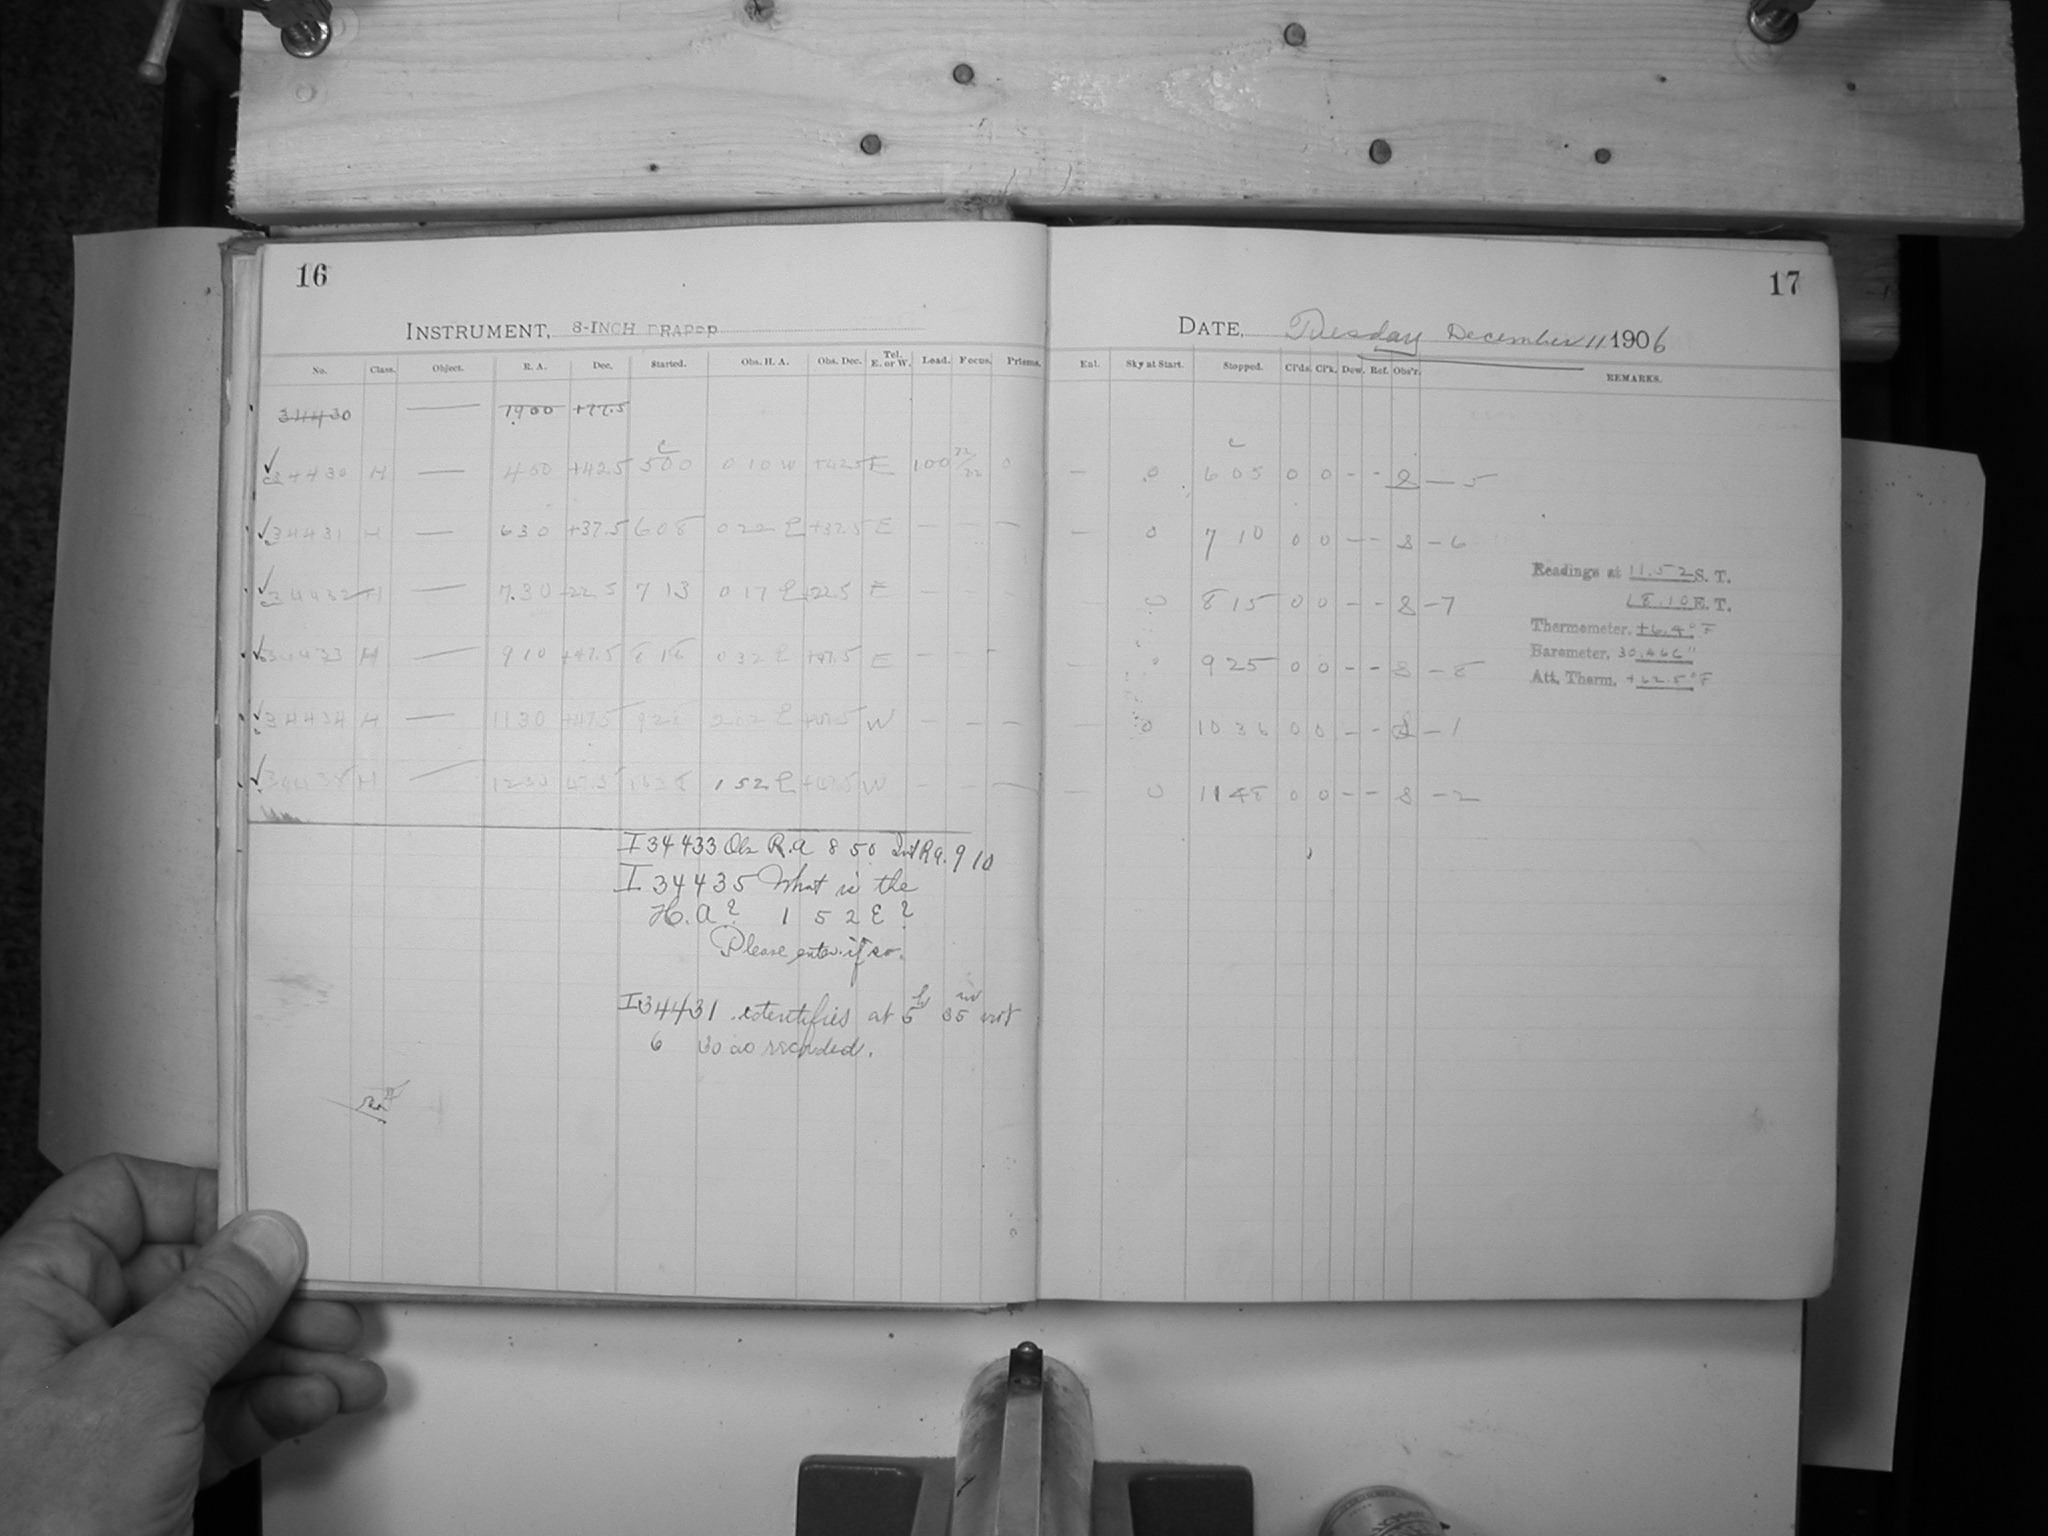 16
17
INSTRUMENT, 8-INCH DRAPER
DATE, Tuesday December 11 1906
No. Class. Object. R. A. Dec. Started. Obs. H. A. Obs. Dec. Tel. E. or W. Lead. Focus. Prisms. Enl. Sky at Start. Stopped. Cl'ds. Cl'k. Dew. Ref. Obs'r. REMARKS.
34430 — 1900 +77.5
34430 H — 400 +42.5 500 010 W +42.5 E 100 72/22 0 — 0 605 0 0 - - — 5
34431 H — 630 +37.5 608 022 E +37.5 E — — — 0 7 10 0 0 - - S - 6
34432 H — 7.30 +22.5 7 13 0 17 E +22.5 E - - - 0 8 15 0 0 - - S - 7
34433 H — 910 +47.5 818 032 E +47.5 E - - - 0 9 25 0 0 - - S - 8
34434 H — 1130 +47.5 928 202 E +47.5 W - - - 0 10 36 0 0 - - S - 1
34435 H — 1230 47.5 1038 1 52 E +47.5 W - - — 0 1148 0 0 - - S - 2
Readings at 11.52 S. T.
18.10 E. T.
Thermometer, +6.4° F
Barometer, 30.466"
Att. Therm. +62.5° F
I 34433 Obs R.a 8 50 Int Ra. 9 10
I 34435 What is the
H. A? 1 5 2 E?
Please enter if so.
I 34431 identifies at 5h 35m not
6 30 as recorded.